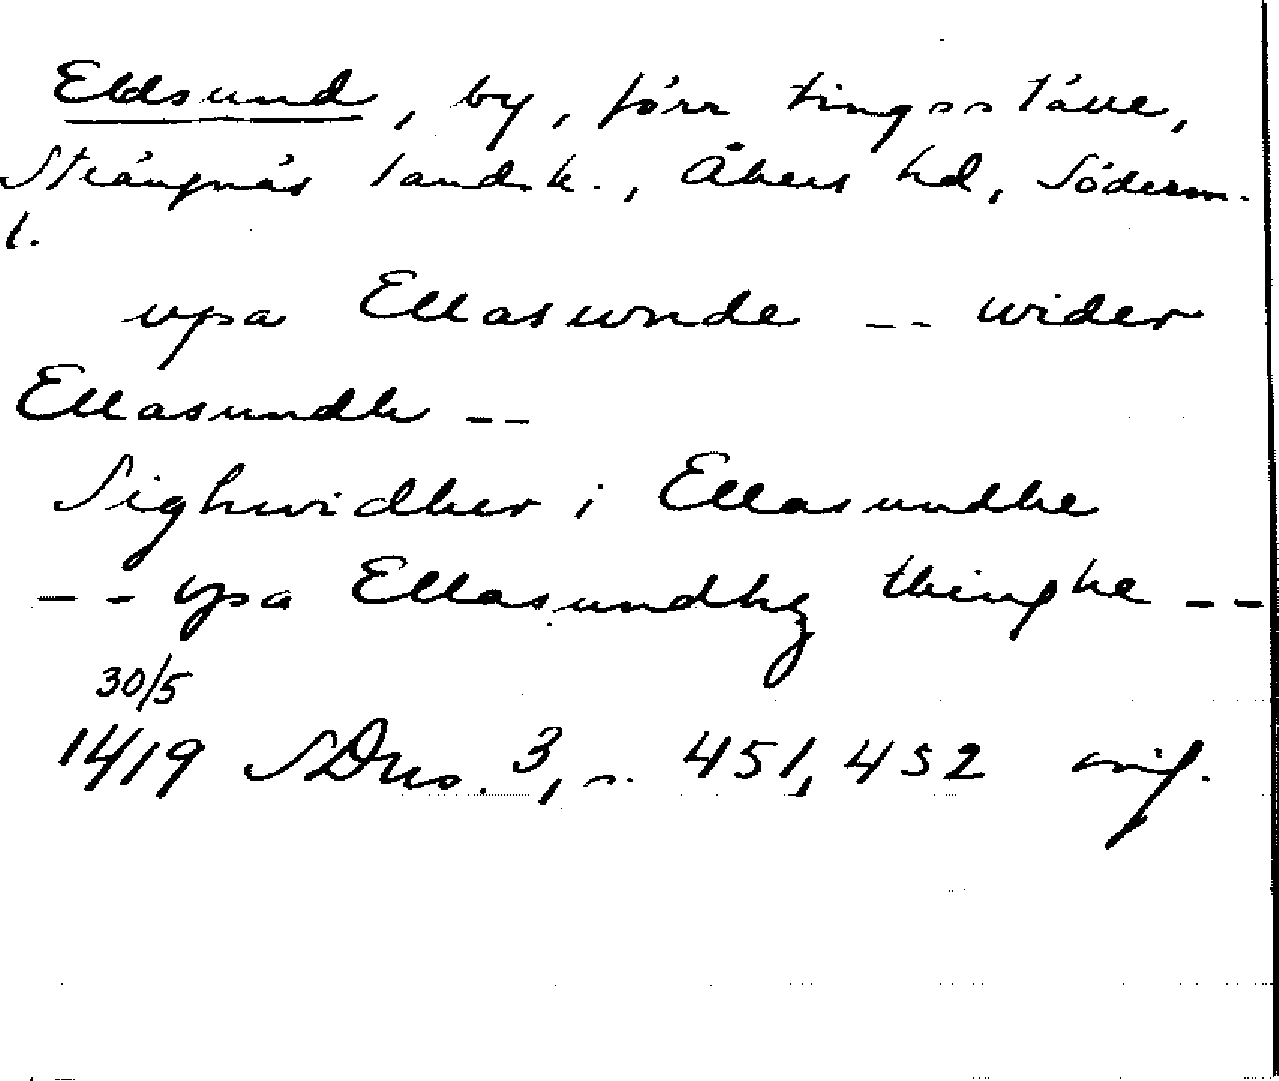 Eldsund, by, förr tingsställe,
Strängnäs landsk., Åkers hd, Söderm.
l.
vpa Ellaswnde -- wider
Ellasundh --
Sighwidher i Ellasundhe
-- vpa Ellasundhz thinghe --
30/5
1419 SDns. 3, s. 451, 452 orig.